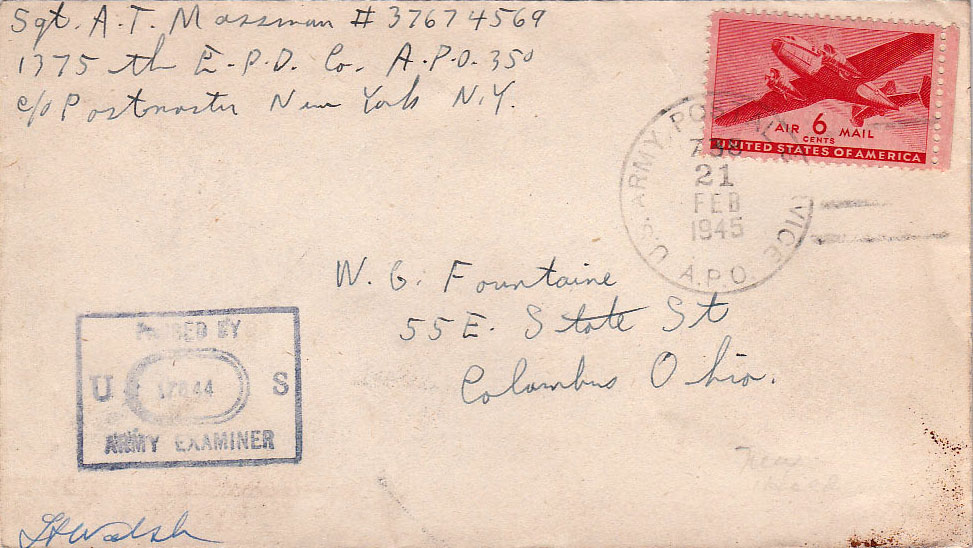 Sgt. A.T. Mossman # 37674569
1375 th E.P.D. Co. A.P.O. 350
c/o Postmaster New York N.Y.
AIR 6 MAIL
CENTS
UNITED STATES OF AMERICA
U.S. ARMY POSTAL SERVICE A.P.O.
21
FEB
1945
W. G. Fountaine
55 E. State St
Columbus Ohio.
PASSED BY
U S
ARMY EXAMINER